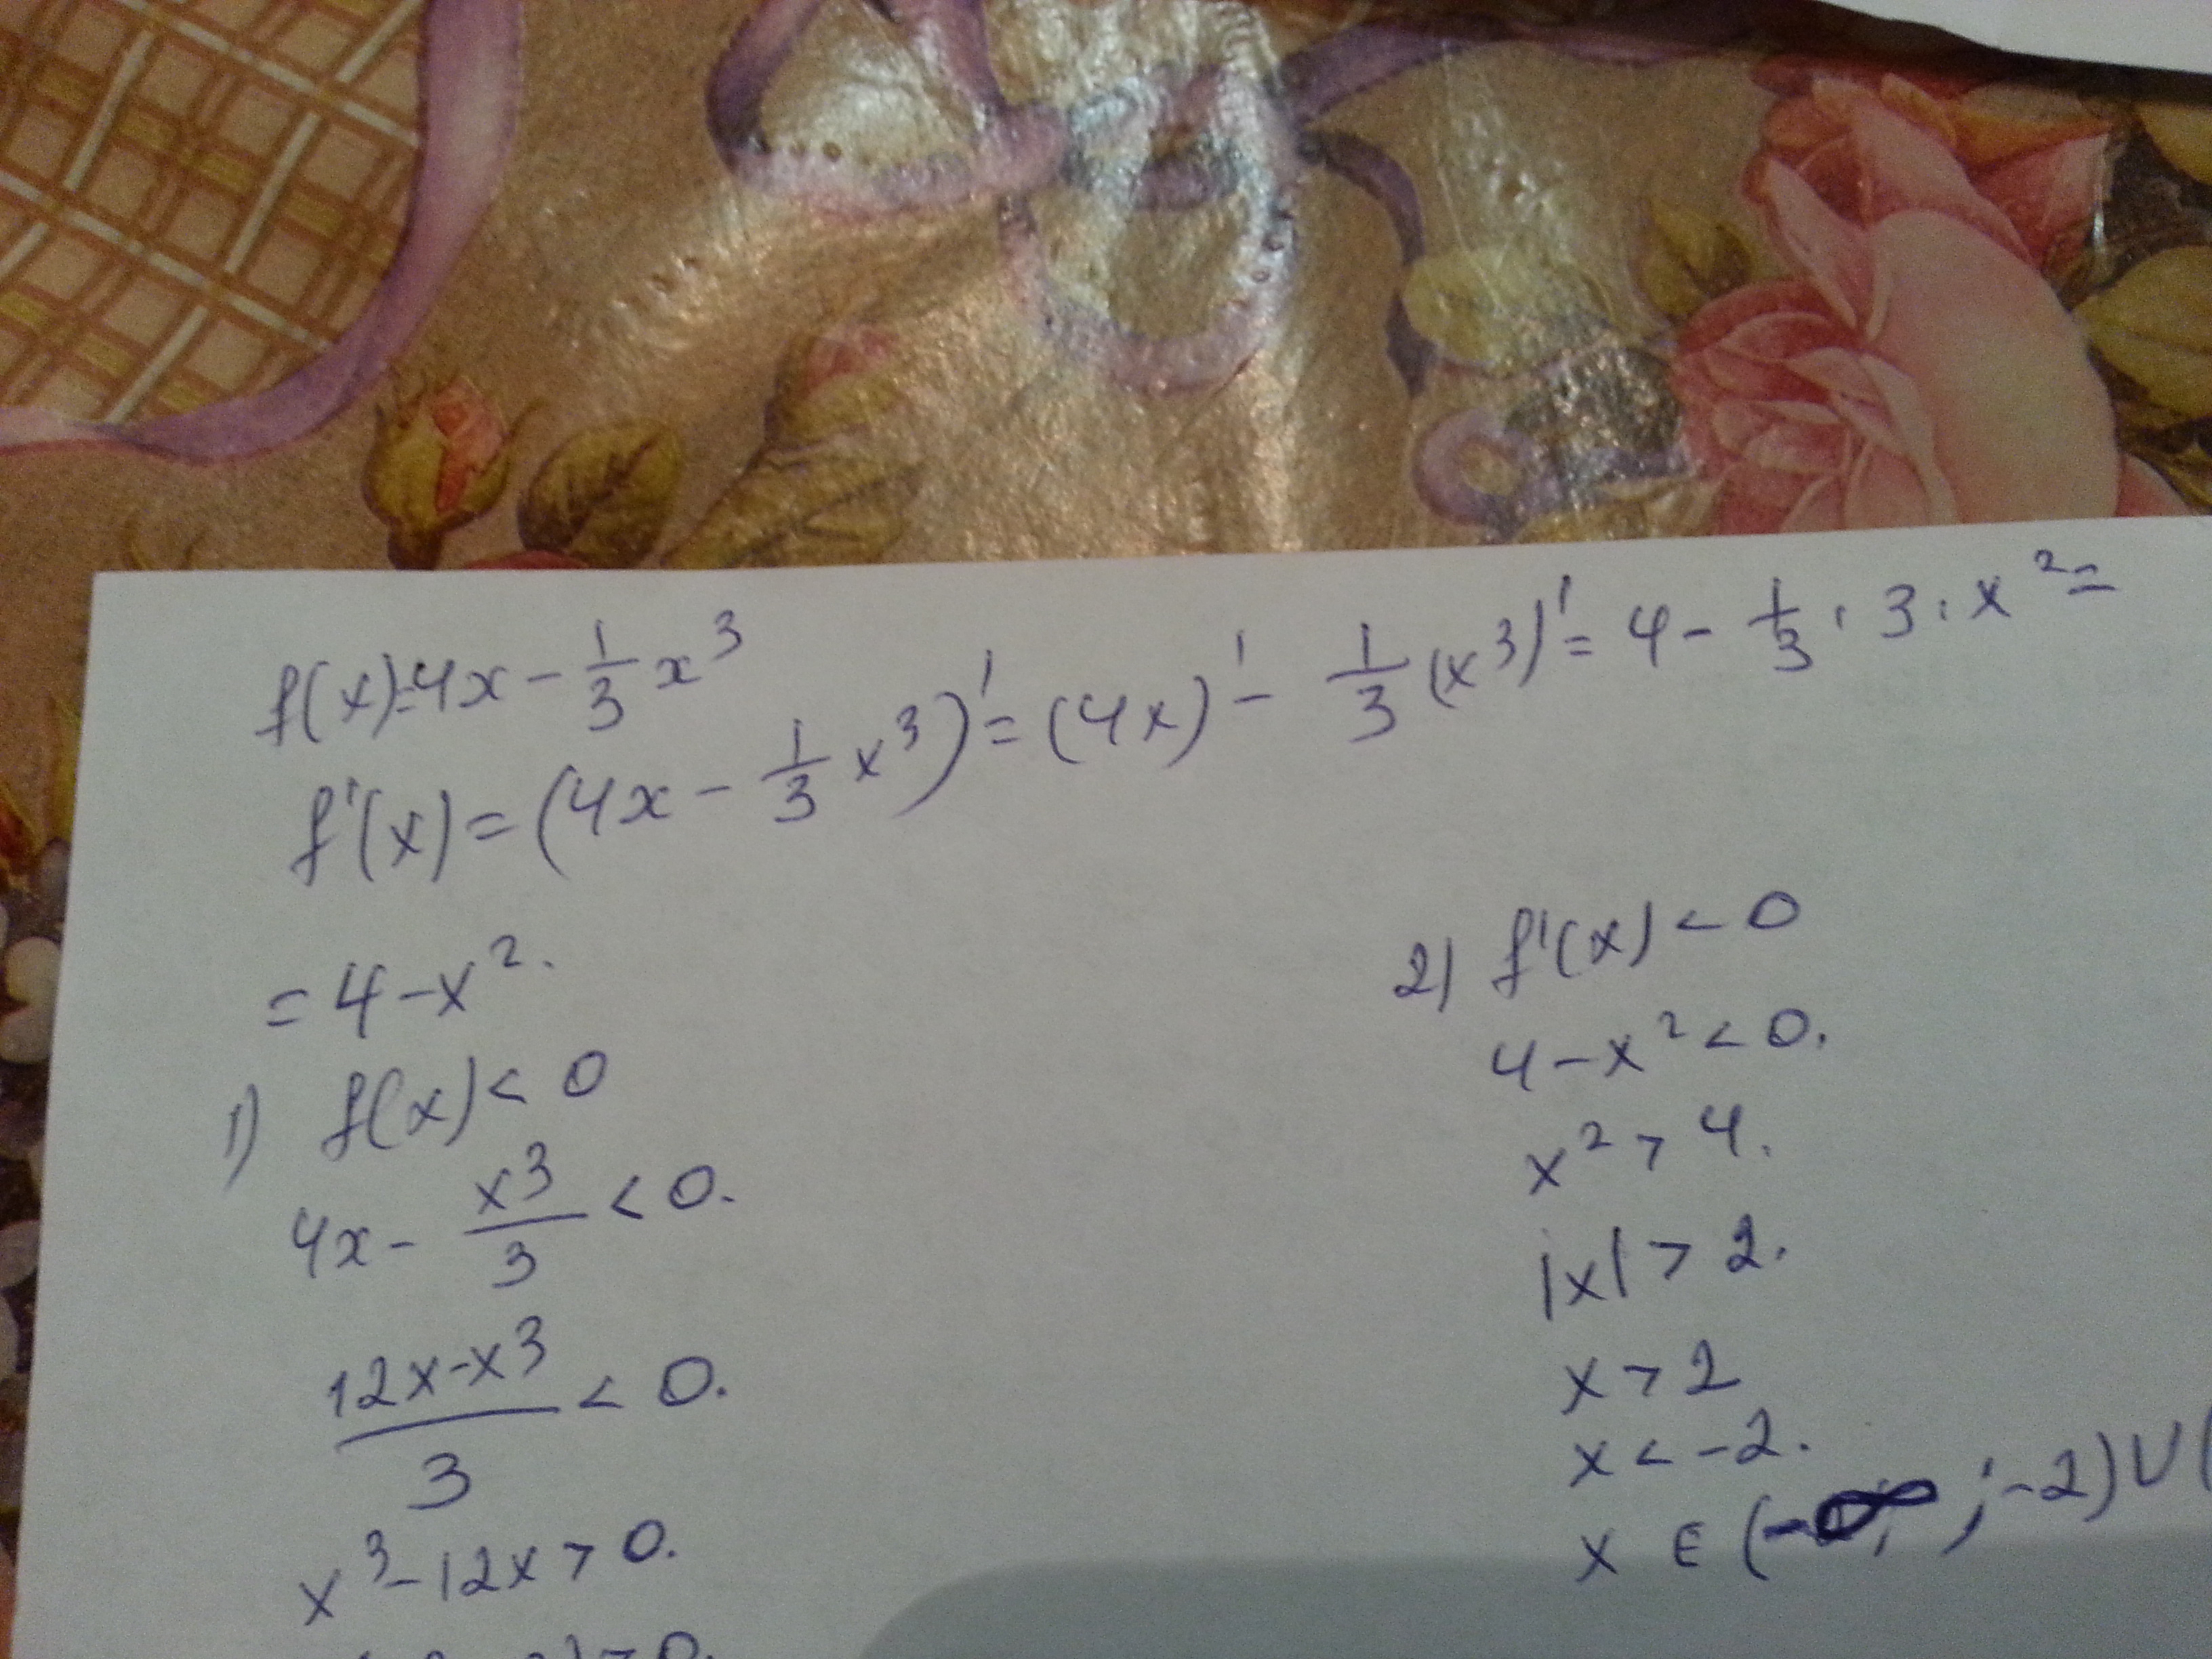 f(x)=4x - 1/3 x³
f'(x) = (4x - 1/3 x³)' = (4x)' - 1/3 (x³)' = 4 - 1/3 · 3 · x² =
= 4 - x².
1) f(x) < 0
4x - x³/3 < 0.
(12x - x³)/3 < 0.
x³ - 12x > 0.
) > 0.
2) f'(x) < 0
4 - x² < 0.
x² > 4.
|x| > 2.
x > 2
x < -2.
x ∈ (-∞; -2) ∪ (